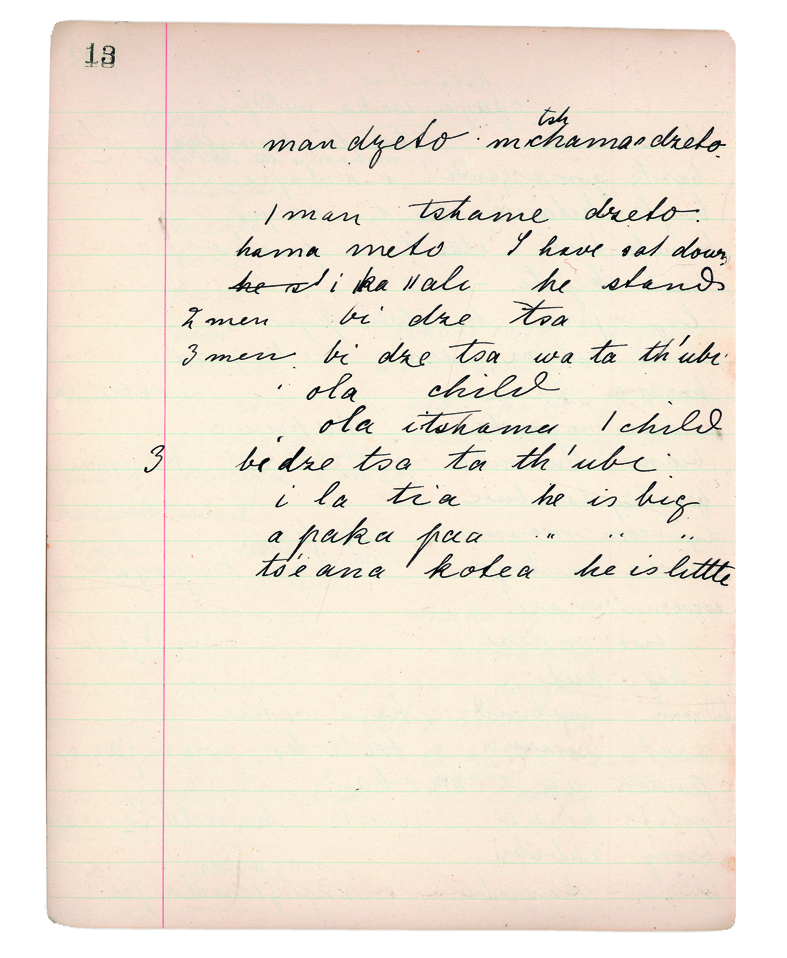 13
tsh
man dzeto mchama dzeto.
1 man tshame dzeto.
hama meto I have sat down
he s i ka ‖ali he stands
2 men bi dze tsa
3 men bi dze tsa wa ta th'ubi
ola child
ola itshama 1 child
3 bi dze tsa ta th'ubi
i la tia he is big
a paka paa " " "
tse ana kotea he is little